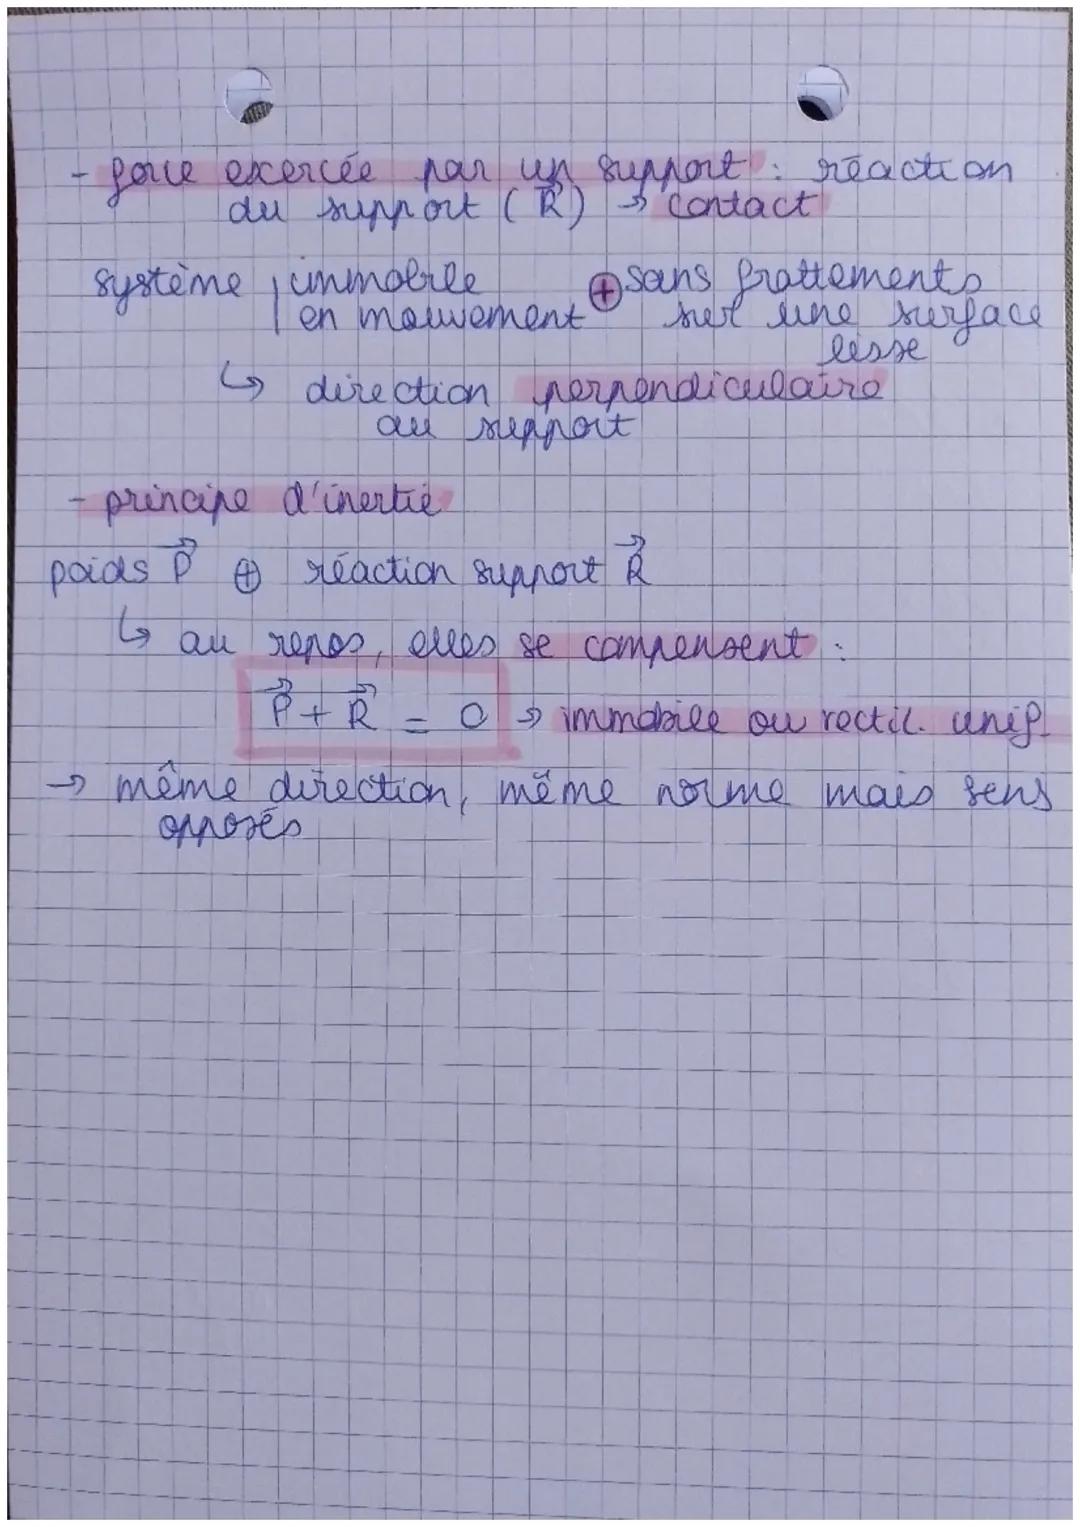 - force exercée par un support : réaction
du support (R⃗) → contact
système | immobile ⊕ sans frottements
en mouvement sur une surface
lisse
↳ direction perpendiculaire
au support
- principe d'inertie
poids P⃗ ⊕ réaction support R⃗
↳ au repos, elles se compensent :
P⃗ + R⃗ = 0 → immobile ou rectil. unif.
→ même direction, même norme mais sens
opposés